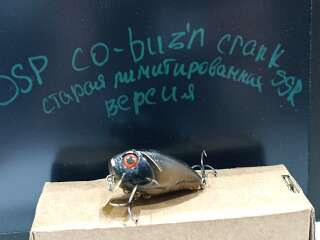 OSP co-buz'n crank SSR
старая лимитированная
версия